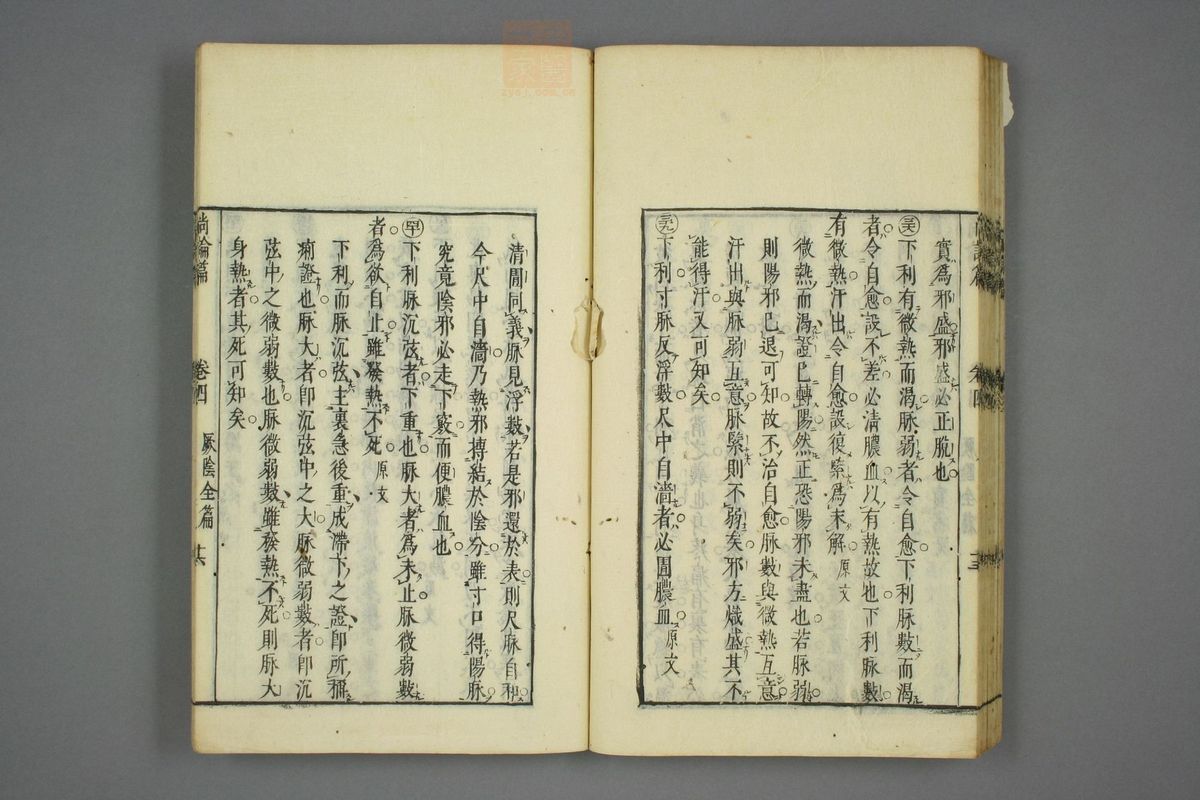 實爲邪盛邪盛必正脫也
下利有微熱而渴脉弱者令自愈下利脉數而渴
者令自愈設不差必清膿血以有熱故也下利脉數
有微熱汗出令自愈設復緊爲未解 原文
微熱而渴證已轉陽然正恐陽邪未盡也若脉弱
則陽邪已退可知故不治自愈脉數與微熱互意
汗出與脉弱互意脉緊則不弱矣邪方熾盛其不
能得汗又可知矣
下利寸脉反浮數尺中自濇者必圊膿血 原文
清圊同義脉見浮數若是邪還於表則尺脉自和
今尺中自濇乃熱邪摶結於陰分雖寸口得陽脉
究竟陰邪必走下竅而便膿血也
下利脉沉弦者下重也脉大者爲未止脉微弱數
者爲欲自止雖發熱不死 原文
下利而脉沉弦主裏急後重成滯下之證卽所稱
痢證也脉大者卽沉弦中之大脉微弱數者卽沉
弦中之微弱數也脉微弱數雖發熱不死則脉大
身熱者其死可知矣
尚論篇 卷四 厥陰全篇
zysj.com.cn